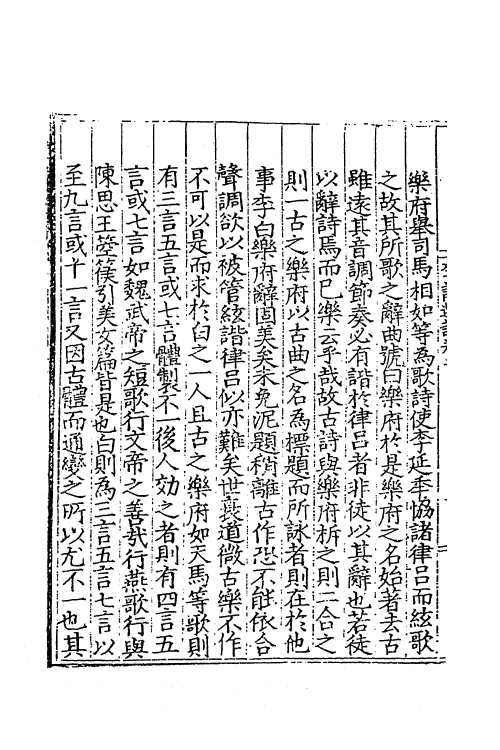 樂府舉司馬相如等為歌詩使李延季協諸律呂而絃歌
之故其所歌之辭曲號曰樂府於是樂府之名始著夫古
雖遠其音調節奏必有諧於律呂者非徒以其辭也若徒
以辭詩焉而巳樂云乎哉故古詩與樂府析之則二合之
則一古之樂府以古曲之名為標題而所詠者則在於他
事李白樂府辭固美矣未免泥題稍離古作恐不能依合
聲調欲以被管絃諧律呂似亦難矣世衰道微古樂不作
不可以是而求於白之一人且古之樂府如天馬等歌則
有三言五言或七言體製不一後人効之者則有四言五
言或七言如魏武帝之短歌行文帝之善哉行燕歌行與
陳思王箜篌引美女篇皆是也白則為三言五言七言以
至九言或十一言又因古體而通變之所以尤不一也其